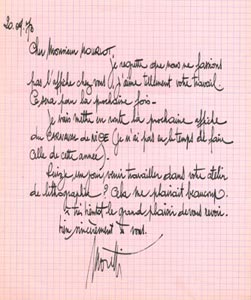 20.09.70
Cher Monsieur Mourlot
je regrette que nous ne fassions
pas l'affiche chez vous j'aime tellement votre travail
Ce sera pour la prochaine fois -
Je vais mettre en route la prochaine affiche
du Carnaval de Nice (je n'ai pas eu le temps de faire
celle de cette année)
Puis-je un jour venir travailler dans votre atelier
de lithographie ? Cela me plairait beaucoup.
à très bientôt le grand plaisir de vous revoir.
bien sincèrement à vous.
Moretti